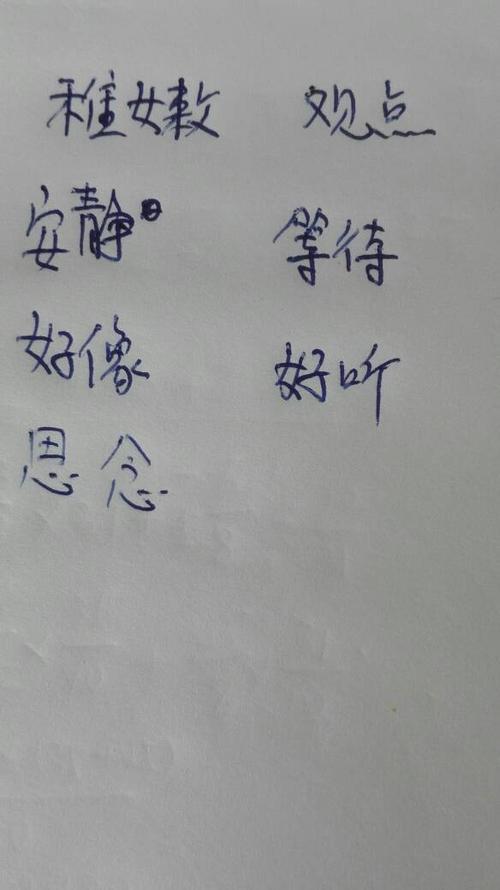 稚嫩 观点
安静 等待
好像 好听
恩念